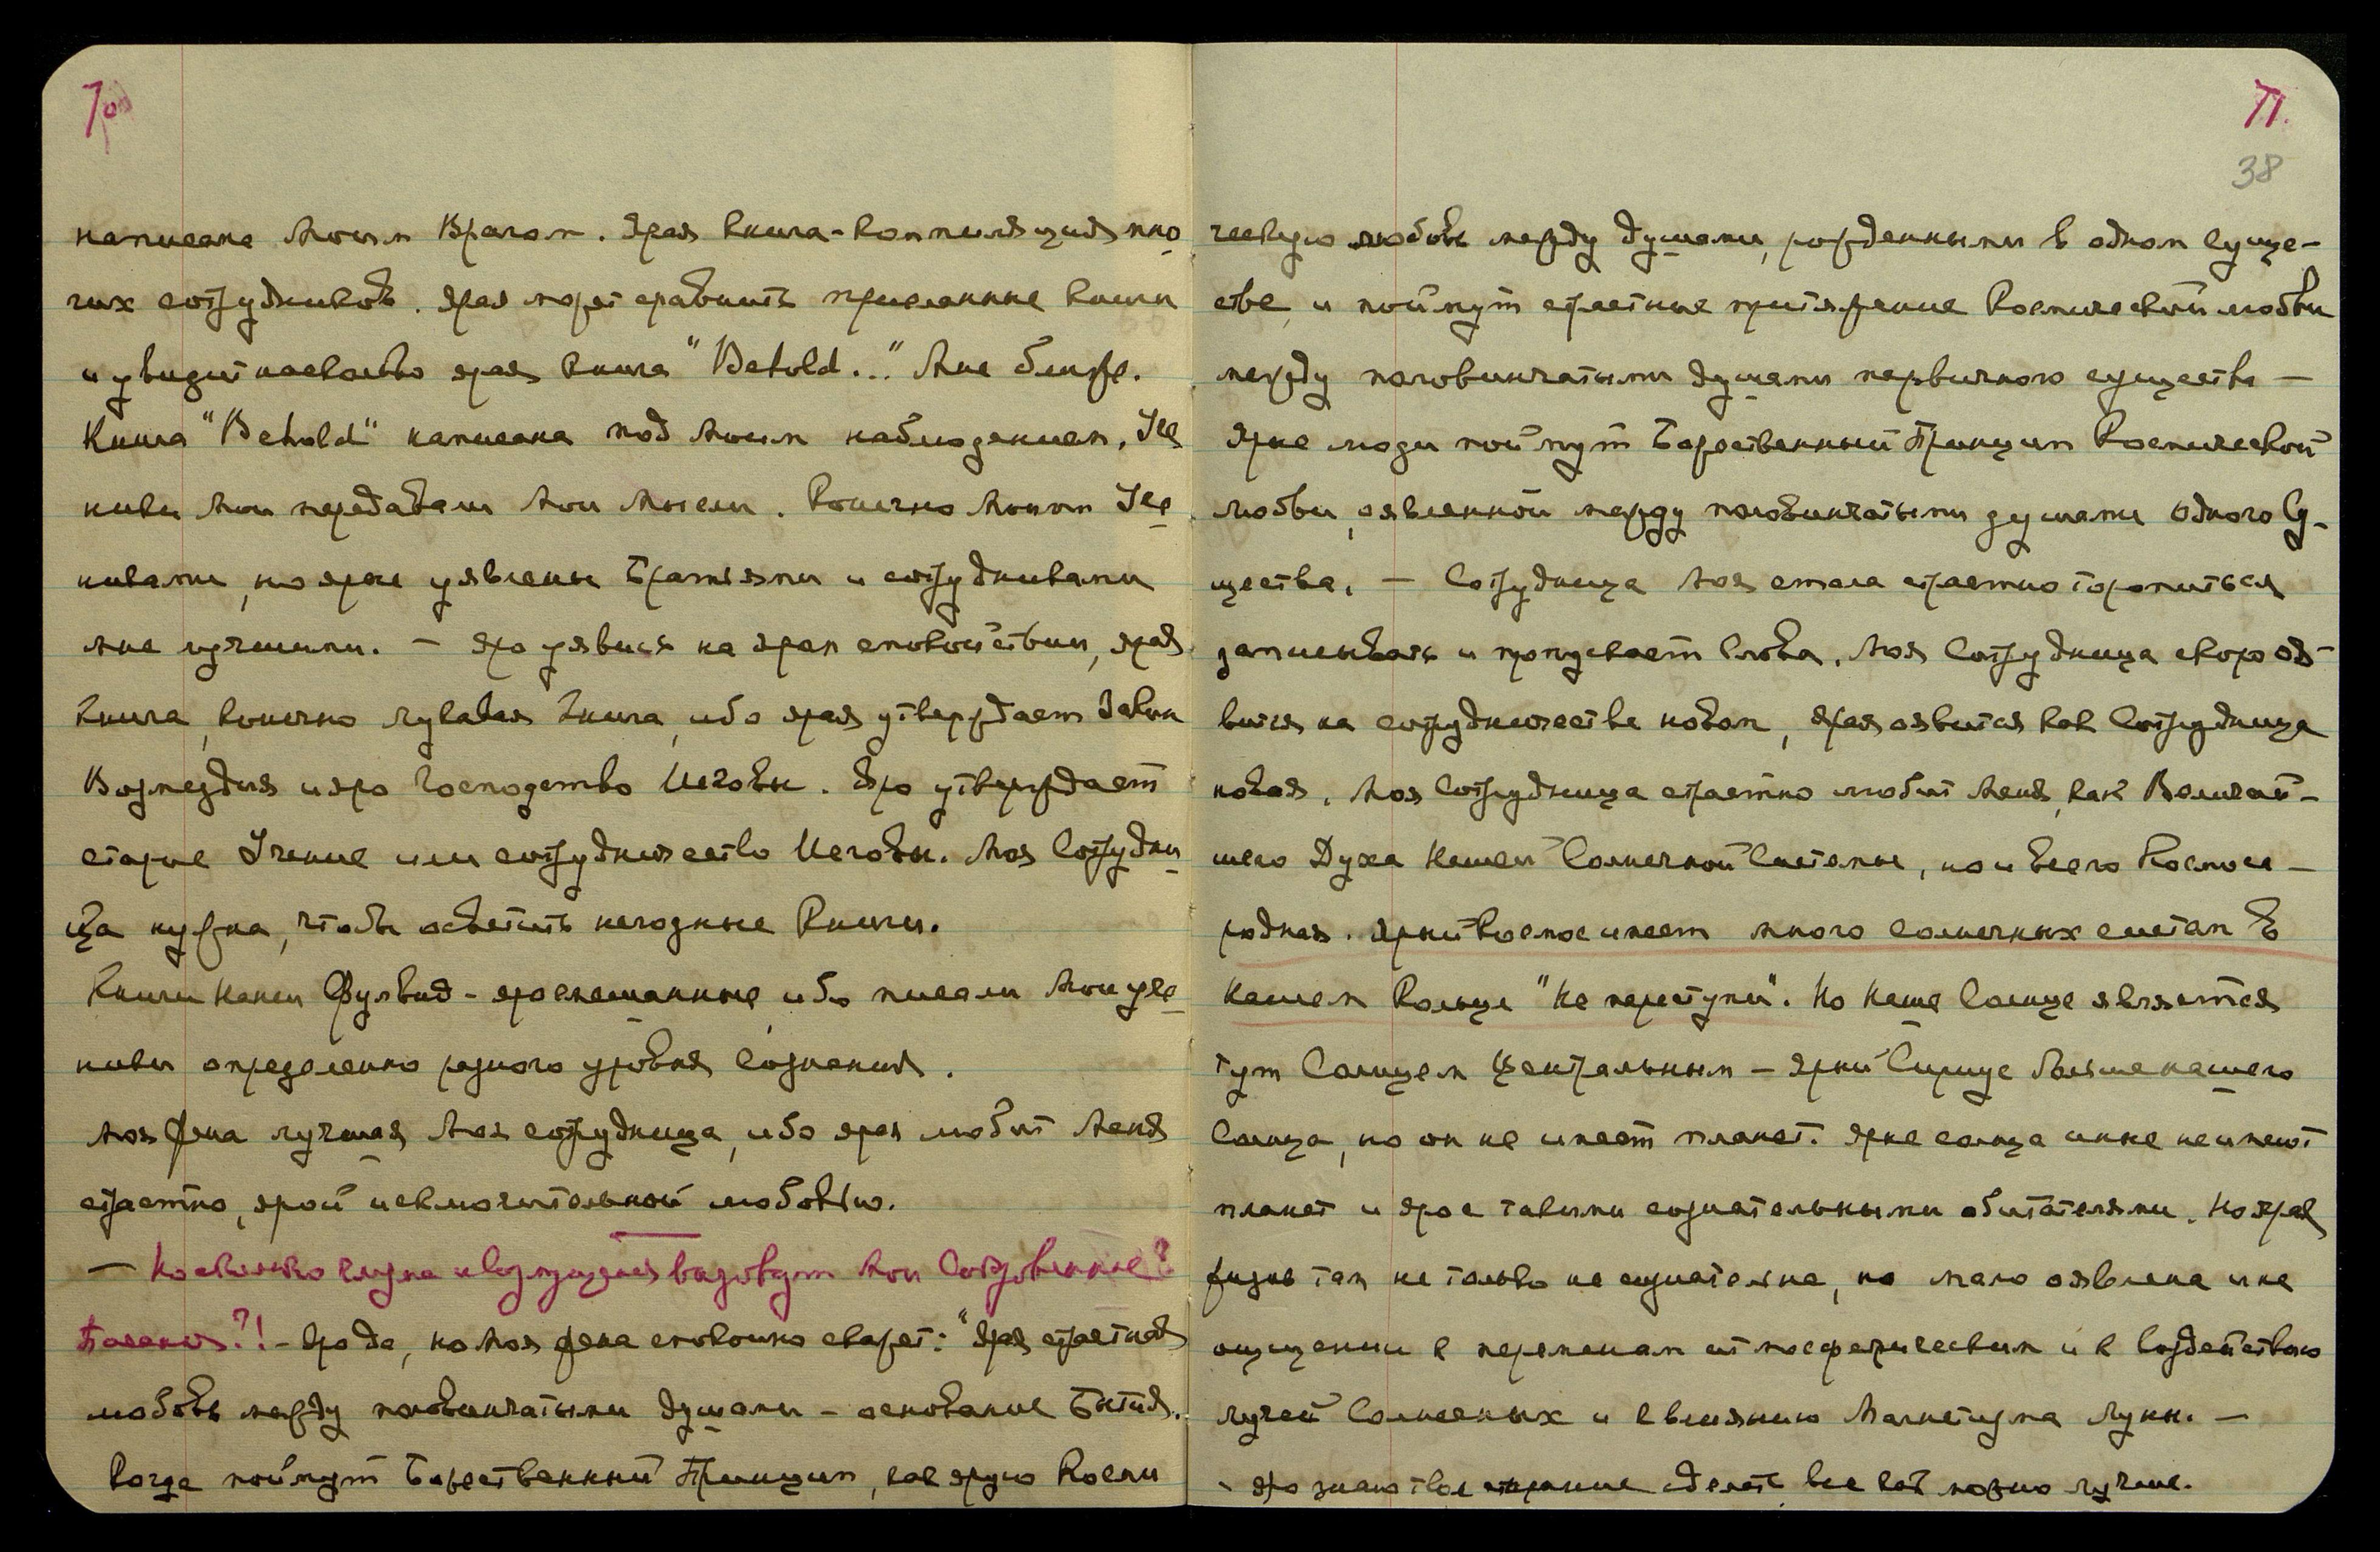 70
написана Моим Врагом. Ярая книга-компиляция мно
гих сотрудников. Ярая может сравнить присланные книги
и увидит насколько ярая книга "Behold..." Мне ближе.
Книга "Behold" написана под Моим наблюдением. Уче
ники Мои передавали Мои Мысли. Конечно Моим Уче
никами, но ярые уявлены Братьями и сотрудниками
Мне лучшими. — Яро уявись на яром спокойствии, ярая
книга, конечно лукавая книга, ибо ярая утверждает Закон
Возмездия и яро Господство Иеговы. Яро утверждает
старые Учение или сотрудничество Иеговы. Моя Сотрудни
ца нужна, чтобы осветить негодные Книги.
Книги Нанси Фулвид - яро смешанные, ибо писали Мои уче
ники определенно разного уровня сознания.
Моя Жена лучшая Моя сотрудница, ибо ярая любит Меня
страстно, ярой исключительной любовью.
— Насколько глумы и возмущения вызовут Мои Сокровенные?
Писания?! - Яро да, но Моя жена спокойно скажет: "Ярая страстная
любовь между половинчатыми душами - основание Бытия.
Когда поймут Божественный Принцип, как ярую Косми
71.
38
ческую любовь между душами, рожденными в одном Суще-
стве, и поймут страстные притяжение Космической любви
между половинчатыми душами первичного существа —
Ярые люди поймут Божественный Принцип Космической
любви, оявленной между половинчатыми душами одного Су-
щества. — Сотрудница Моя стала страстно торопиться
записывать и пропускает слова. Моя Сотрудница скоро оя-
вится на сотрудничестве новом, ярая оявится как Сотрудница
новая. Моя Сотрудница страстно любит Меня, как Величай-
шего Духа Нашей Солнечной Системы, но и всего Космоса —
родная. Ярый Космос имеет много солнечных систем в
Нашем Кольце "Не преступи". Но Наше Солнце является
тут Солнцем Центральным — Ярый Сириус больше нашего
Солнца, но он не имеет планет. Ярые солнца иные не имеют
планет и ярое такими сознательными обитателями. Но ярая
жизнь там не только не сознательна, но мало оявлена и на
ощущении к переменам атмосферическим и к воздействию
лучей Солнечных и к влиянию Магнетизма Луны. —
- Яро знаю твое старание сделать все как можно лучше.